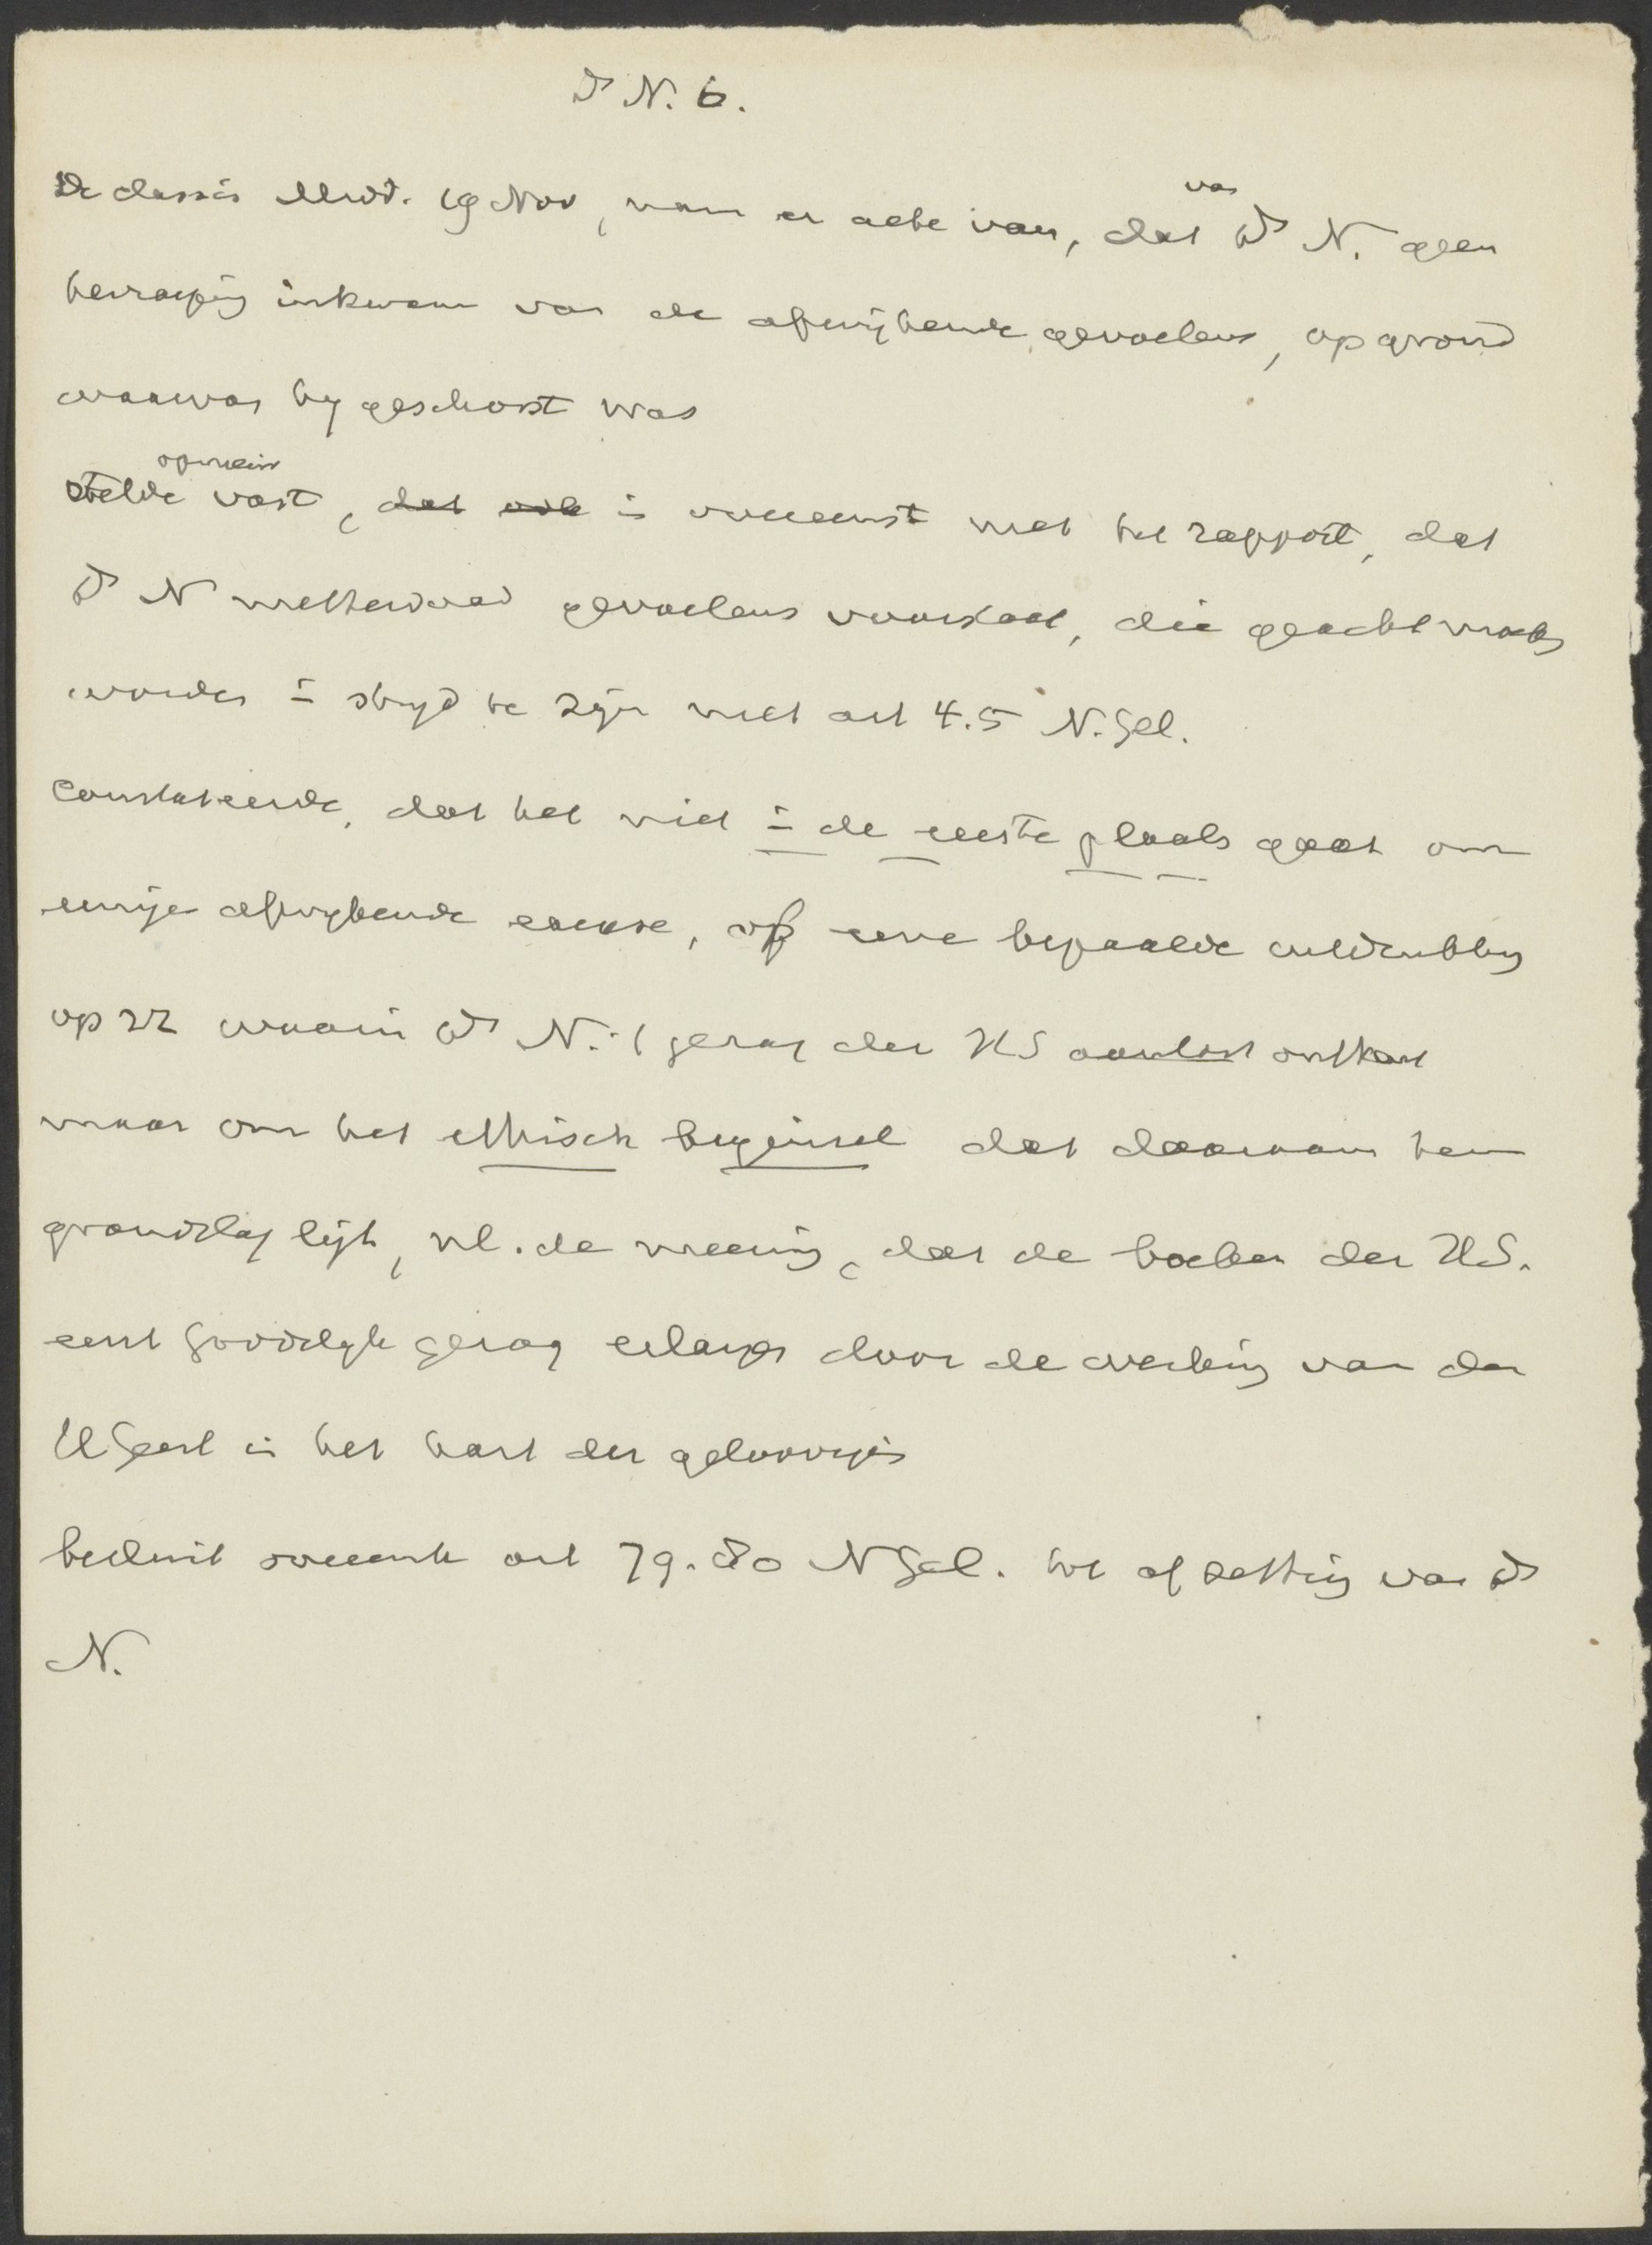 Ds N. 6.
De classis Mid. 19 Nov, nam er acte van, dat van Ds N. geen
herroeping inkwam van de afwijkende gevoelens, op grond
waarvan hij geschorst was
stelde opnieuw vast, dat ook in overeenst met het rapport, dat
Ds N metterdaad gevoelens voorstaat, die geacht moeten
worden in strijd te zijn met art 4.5 N.Gel.
Constateerde, dat het niet in de eerste plaats gaat om
eenige afwijkende exegese, of eene bepaalde
op zz waarin Ds N. 't gezag der HS aantast ontkent
maar om het ethisch beginsel dat daaraan ten
grondslag ligt, nl. de meening, dat de boeken der HS.
eerst Goddelijk gezag erlangen door de werking van den
HGeest in het hart der geloovigen
besluit overeenk art 79.80 NGel. tot afzetting van Ds
N.